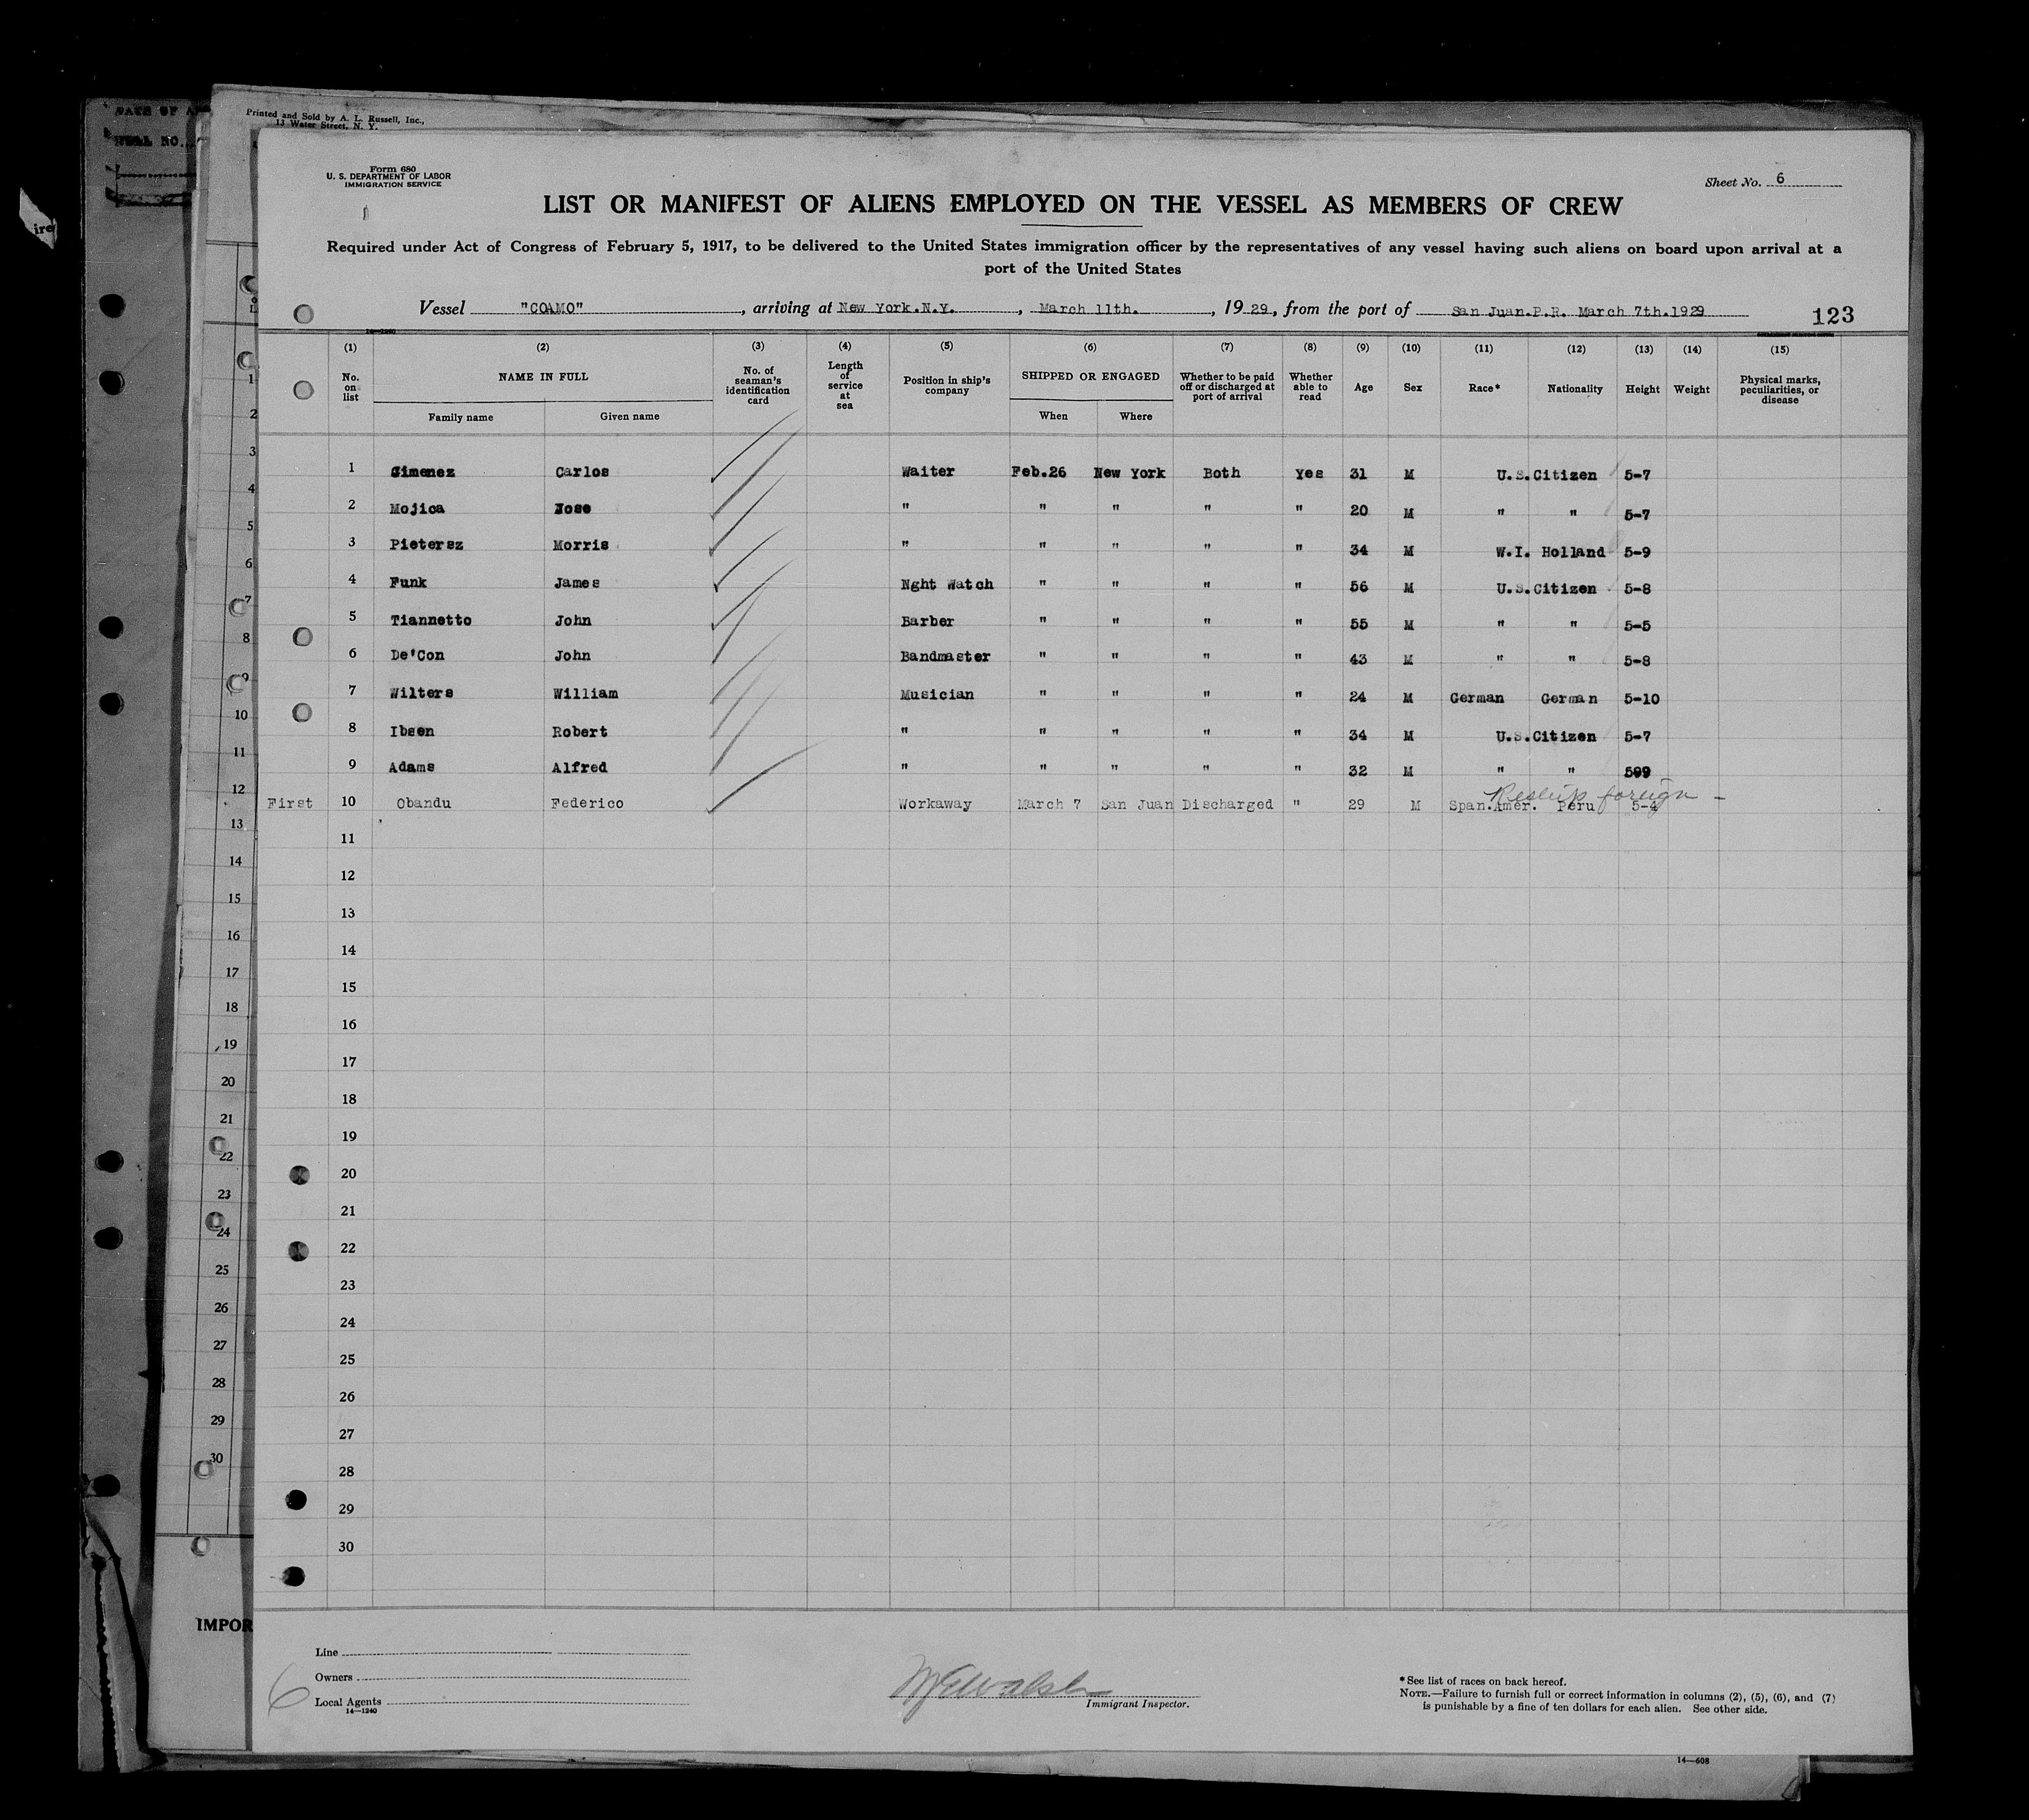 DATE OF A
Printed and Sold by A. L. Russell, Inc.,
13 Water Street, N. Y.
ire
Form 680
U. S. DEPARTMENT OF LABOR
IMMIGRATION SERVICE
Sheet No. 6
LIST OR MANIFEST OF ALIENS EMPLOYED ON THE VESSEL AS MEMBERS OF CREW
Required under Act of Congress of February 5, 1917, to be delivered to the United States immigration officer by the representatives of any vessel having such aliens on board upon arrival at a
port of the United States
Vessel "COAMO", arriving at New York.N.Y., March 11th., 1929, from the port of San Juan.P.R. March 7th.1929
123
14-1240
(1) (2) (3) (4) (5) (6) (7) (8) (9) (10) (11) (12) (13) (14) (15)
No. on list NAME IN FULL Family name Given name No. of seaman's identification card Length of service at sea Position in ship's company SHIPPED OR ENGAGED When Where Whether to be paid off or discharged at port of arrival Whether able to read Age Sex Race* Nationality Height Weight Physical marks, peculiarities, or disease
1 Gimenez Carlos Waiter Feb.26 New York Both Yes 31 M U.S.Citizen 5-7
2 Mojica Jose " " " " " 20 M " " 5-7
3 Pietersz Morris " " " " " 34 M W.I. Holland 5-9
4 Funk James Nght Watch " " " " 56 M U.S.Citizen 5-8
5 Tiannetto John Barber " " " " 55 M " " 5-5
6 De'Con John Bandmaster " " " " 43 M " " 5-8
7 Wilters William Musician " " " " 24 M German German 5-10
8 Ibsen Robert " " " " " 34 M U.S.Citizen 5-7
9 Adams Alfred " " " " " 32 M " " 599
Reship foreign -
First 10 Obandu Federico Workaway March 7 San Juan Discharged " 29 M Span.Amer. Peru 5-4
11
12
13
14
15
16
17
18
19
20
21
22
23
24
25
26
27
28
29
30
1
2
3
4
5
6
7
8
9
10
11
12
13
14
15
16
17
18
19
20
21
22
23
24
25
26
27
28
29
30
IMPOR
Line
Owners
Local Agents
14-1240
6
Immigrant Inspector.
* See list of races on back hereof.
NOTE.—Failure to furnish full or correct information in columns (2), (5), (6), and (7)
is punishable by a fine of ten dollars for each alien. See other side.
14-608